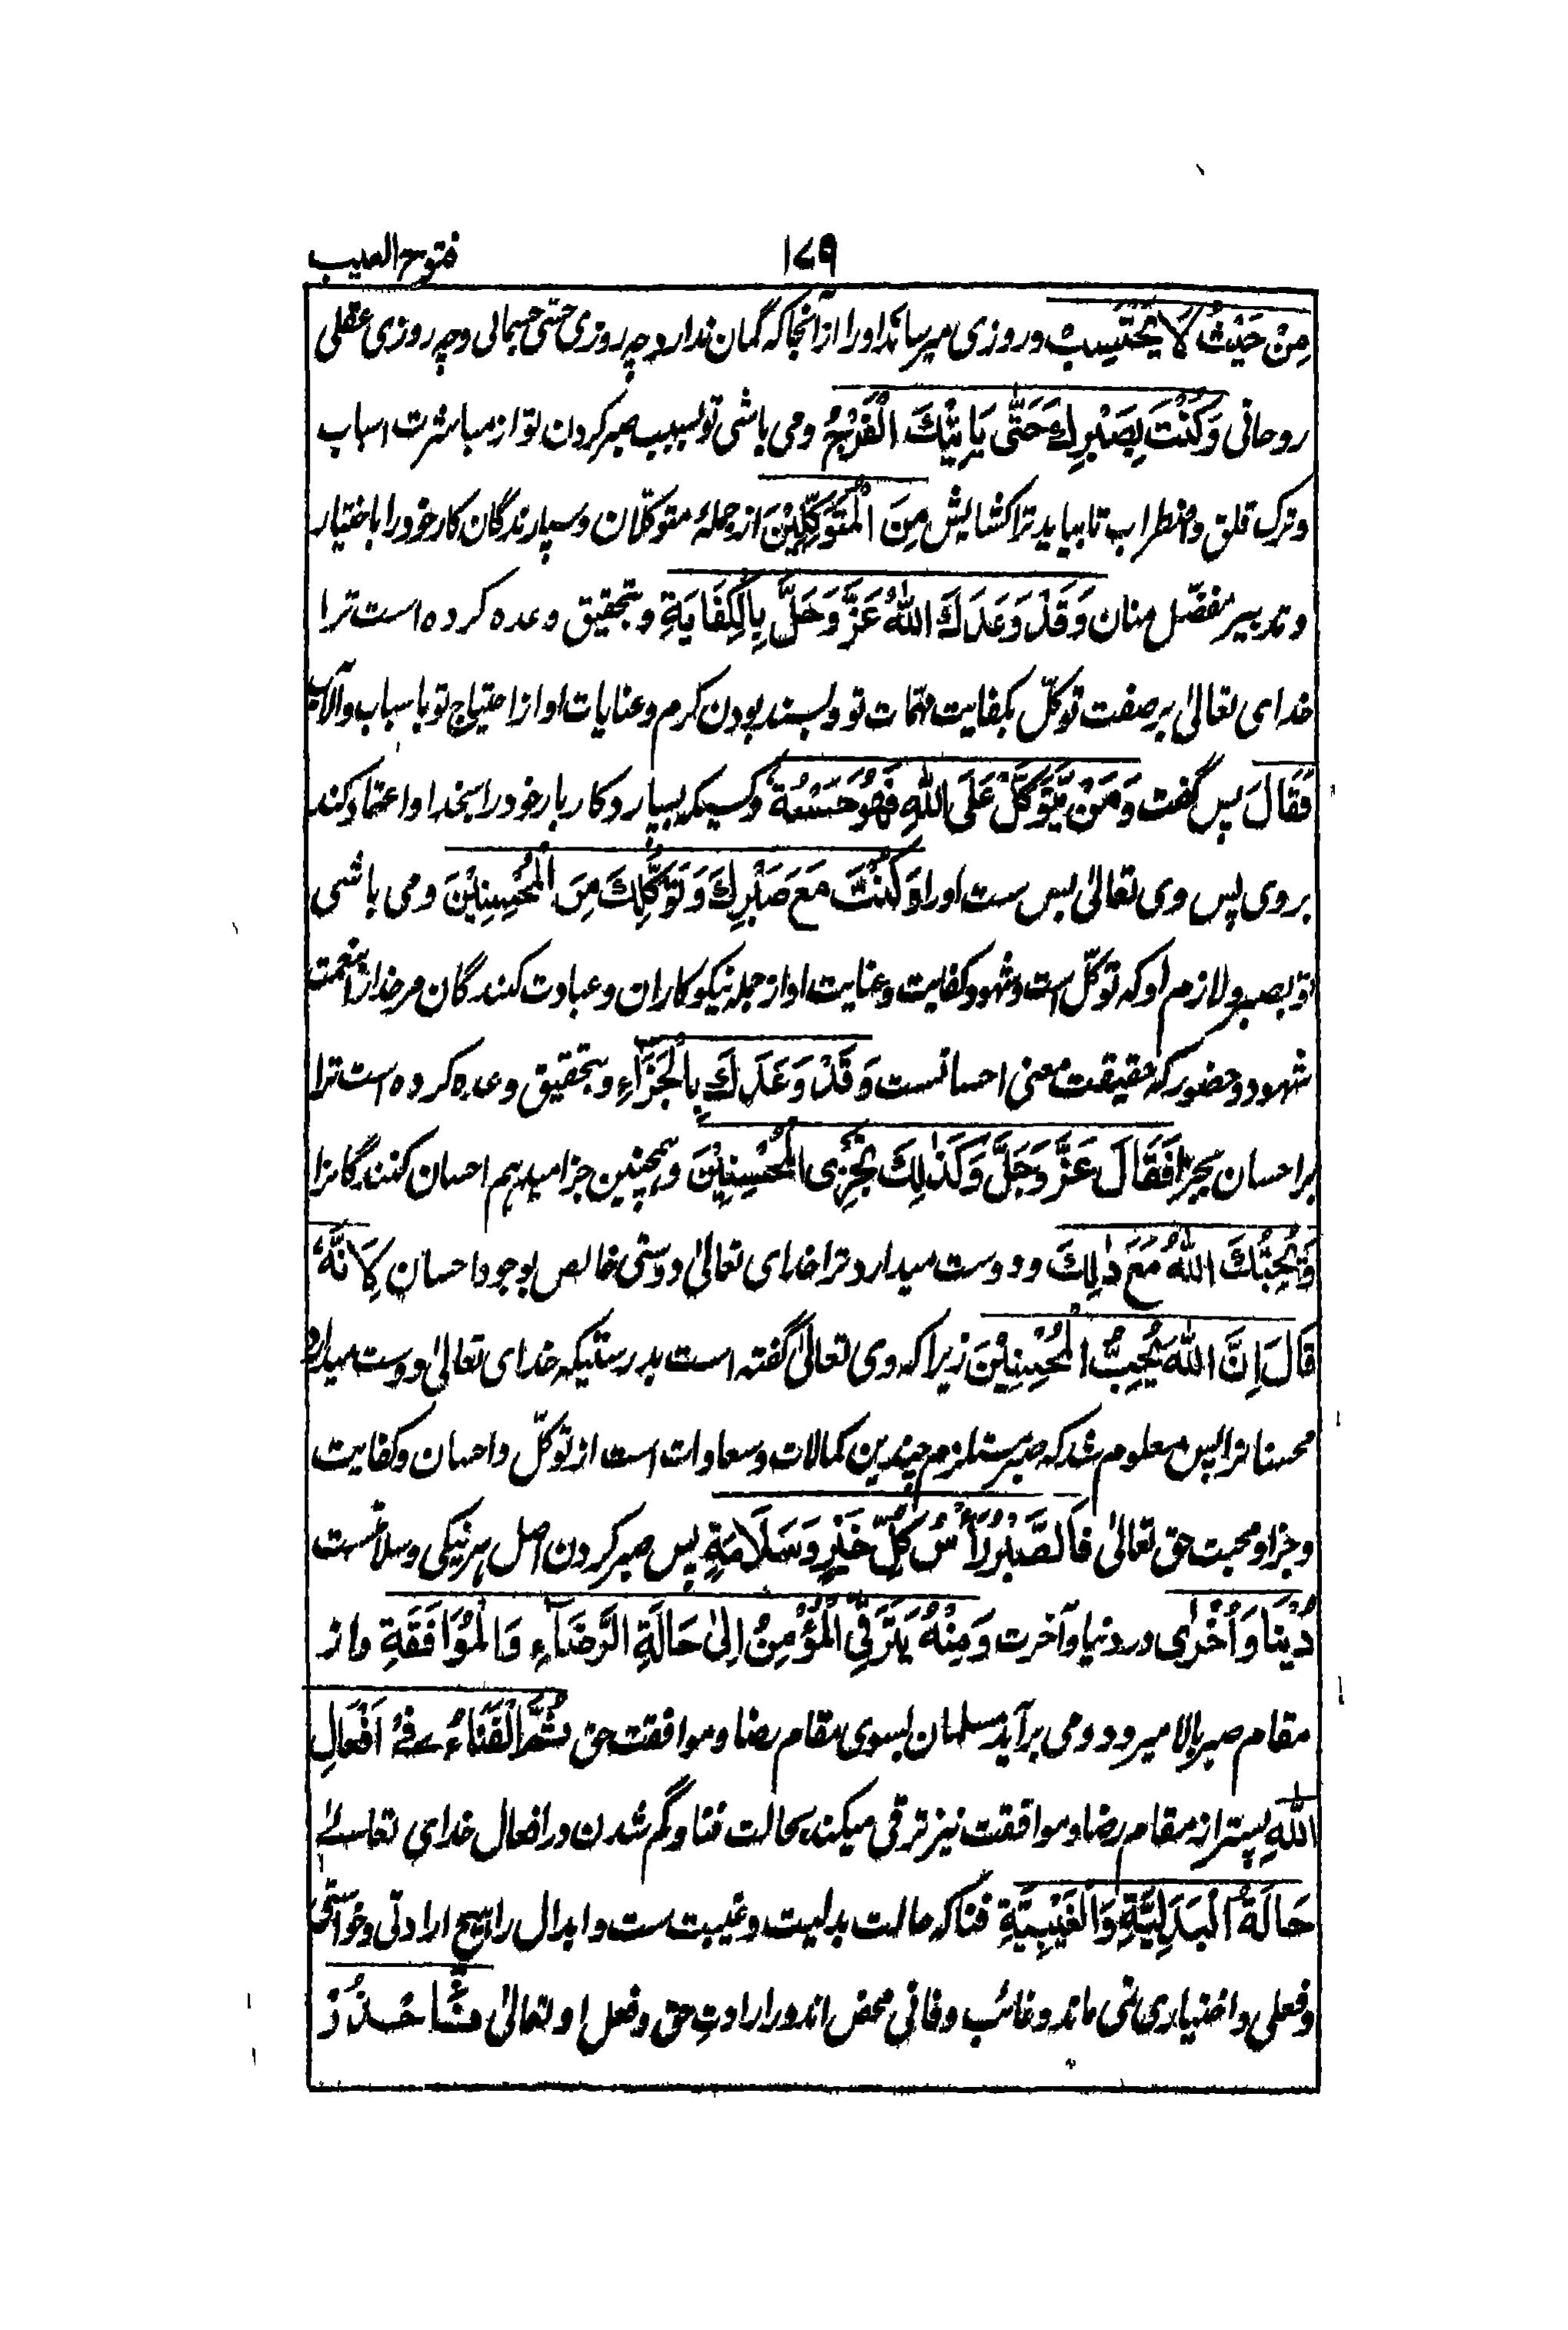 فتوح الغیب ۱۷۹
مِنْ حَیْثُ لَا یَحْتَسِبُ وروزی میرساند او را از آنجا که گمان ندارد چه روزی حسّی جسمانی وچه روزی عقلی
روحانی وَکُنْتَ بِصَبْرِكَ حَتّٰی یَاْتِیَكَ الْفَرَجُ ومی باشی تو بسبب صبر کردن تو از مباشرت اسباب
وترک قلق واضطراب تا بیاید ترا کشایش مِنَ الْمُتَوَکِّلِیْنَ از جملۂ متوکّلان وسپارندگان کار خود را باختیار
وتدبیر مفضّل منان وَقَدْ وَعَدَكَ اللهُ عَزَّ وَجَلَّ بِالْکِفَایَةِ وبتحقیق وعده کرده است ترا
خدای تعالیٰ بر صفت توکّل بکفایت مهمّات تو وبسند بودن کرم وعنایات او از احتیاج تو باسباب وآلات
فَقَالَ پس گفت وَمَنْ یَّتَوَکَّلْ عَلَی اللهِ فَهُوَ حَسْبُهٗ وکسیکه بسپارد کاربار خود را بخدا واعتماد کند
بر وی پس وی تعالیٰ بس ست او را وَکُنْتَ مَعَ صَبْرِكَ وَتَوَکُّلِكَ مِنَ الْمُحْسِنِیْنَ ومی باشی
تو بصبر ولازم او که توکّل است وشهود کفایت وعنایت او از جمله نیکوکاران وعبادت کنندگان مر خدا را بنعمت
شهود وحضور که حقیقت معنی احسانست وَقَدْ وَعَدَكَ بِالْجَزَآءِ وبتحقیق وعده کرده است ترا
بر احسان بجزا فَقَالَ عَزَّ وَجَلَّ وَکَذٰلِكَ نَجْزِی الْمُحْسِنِیْنَ وهمچنین جزا میدهم احسان کنندگانرا
وَیُحِبُّكَ اللهُ مَعَ ذٰلِكَ ودوست میدارد ترا خدای تعالیٰ دوستی خالص بوجود احسان لِاَنَّهٗ
قَالَ اِنَّ اللهَ یُحِبُّ الْمُحْسِنِیْنَ زیرا که وی تعالیٰ گفته است بدرستیکه خدای تعالیٰ دوست میدارد
محسنانرا پس معلوم شد که صبر مستلزم چندین کمالات وسعادات است از توکّل واحسان وکفایت
وجزا ومحبت حق تعالیٰ فَالصَّبْرُ رَأْسُ کُلِّ خَیْرٍ وَسَلَامَةٍ پس صبر کردن اصل هر نیکی وسلامتست
دُنْیَا وَاُخْرٰی در دنیا وآخرت وَمِنْهُ یَتَرَقَّی الْمُؤْمِنُ اِلٰی حَالَةِ الرَّضَآءِ وَالْمُوَافَقَةِ واز
مقام صبر بالا میرود ومی برآید مسلمان بسوی مقام رضا وموافقت حق ثُمَّ الْفَنَاءُ فِیْ اَفْعَالِ
اللهِ پستر از مقام رضا وموافقت نیز ترقی میکند بحالت فنا وگم شدن در افعال خدای تعالیٰ
حَالَةُ الْبَدَلِیَّةِ وَالْغَیْبِیَّةِ فنا که حالت بدلیت وغیبت ست وابدال را هیچ ارادتی وخواستی
وفعلی واختیاری نمی ماند وغائب وفانی محض اند در ارادتِ حق وفعل او تعالیٰ فَاحْذَرْ